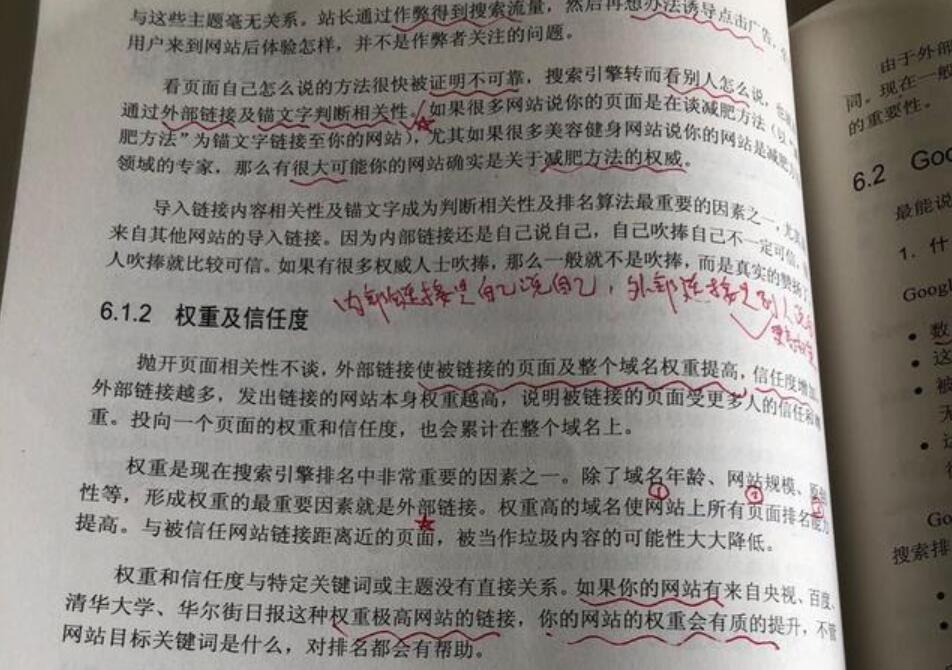 与这些主题毫无关系。站长通过作弊得到搜索流量，然后再想办法诱导点击广告，
用户来到网站后体验怎样，并不是作弊者关注的问题。
看页面自己怎么说的方法很快被证明不可靠，搜索引擎转而看别人怎么说，
通过外部链接及锚文字判断相关性。如果很多网站说你的页面是在谈减肥方法（以
肥方法”为锚文字链接至你的网站），尤其如果很多美容健身网站说你的网站是减肥方
领域的专家，那么有很大可能你的网站确实是关于减肥方法的权威。
导入链接内容相关性及锚文字成为判断相关性及排名算法最重要的因素之一，尤其
来自其他网站的导入链接。因为内部链接还是自己说自己，自己吹捧自己不一定可信，
人吹捧就比较可信。如果有很多权威人士吹捧，那么一般就不是吹捧，而是真实的赞扬了
内部链接是自己说自己，外部链接是别人说
6.1.2 权重及信任度
抛开页面相关性不谈，外部链接使被链接的页面及整个域名权重提高，信任度增加
外部链接越多，发出链接的网站本身权重越高，说明被链接的页面受更多人的信任和
重。投向一个页面的权重和信任度，也会累计在整个域名上。
权重是现在搜索引擎排名中非常重要的因素之一。除了域名年龄、网站规模、原创
① ②
性等，形成权重的最重要因素就是外部链接。权重高的域名使网站上所有页面排名能力
提高。与被信任网站链接距离近的页面，被当作垃圾内容的可能性大大降低。
权重和信任度与特定关键词或主题没有直接关系。如果你的网站有来自央视、百度、
清华大学、华尔街日报这种权重极高网站的链接，你的网站的权重会有质的提升，不管
网站目标关键词是什么，对排名都会有帮助。
由于外部
词。现在一般
的重要性。
6.2 Goo
最能说
1. 什
Googl
• 数
• 这
• 被
Go
搜索排